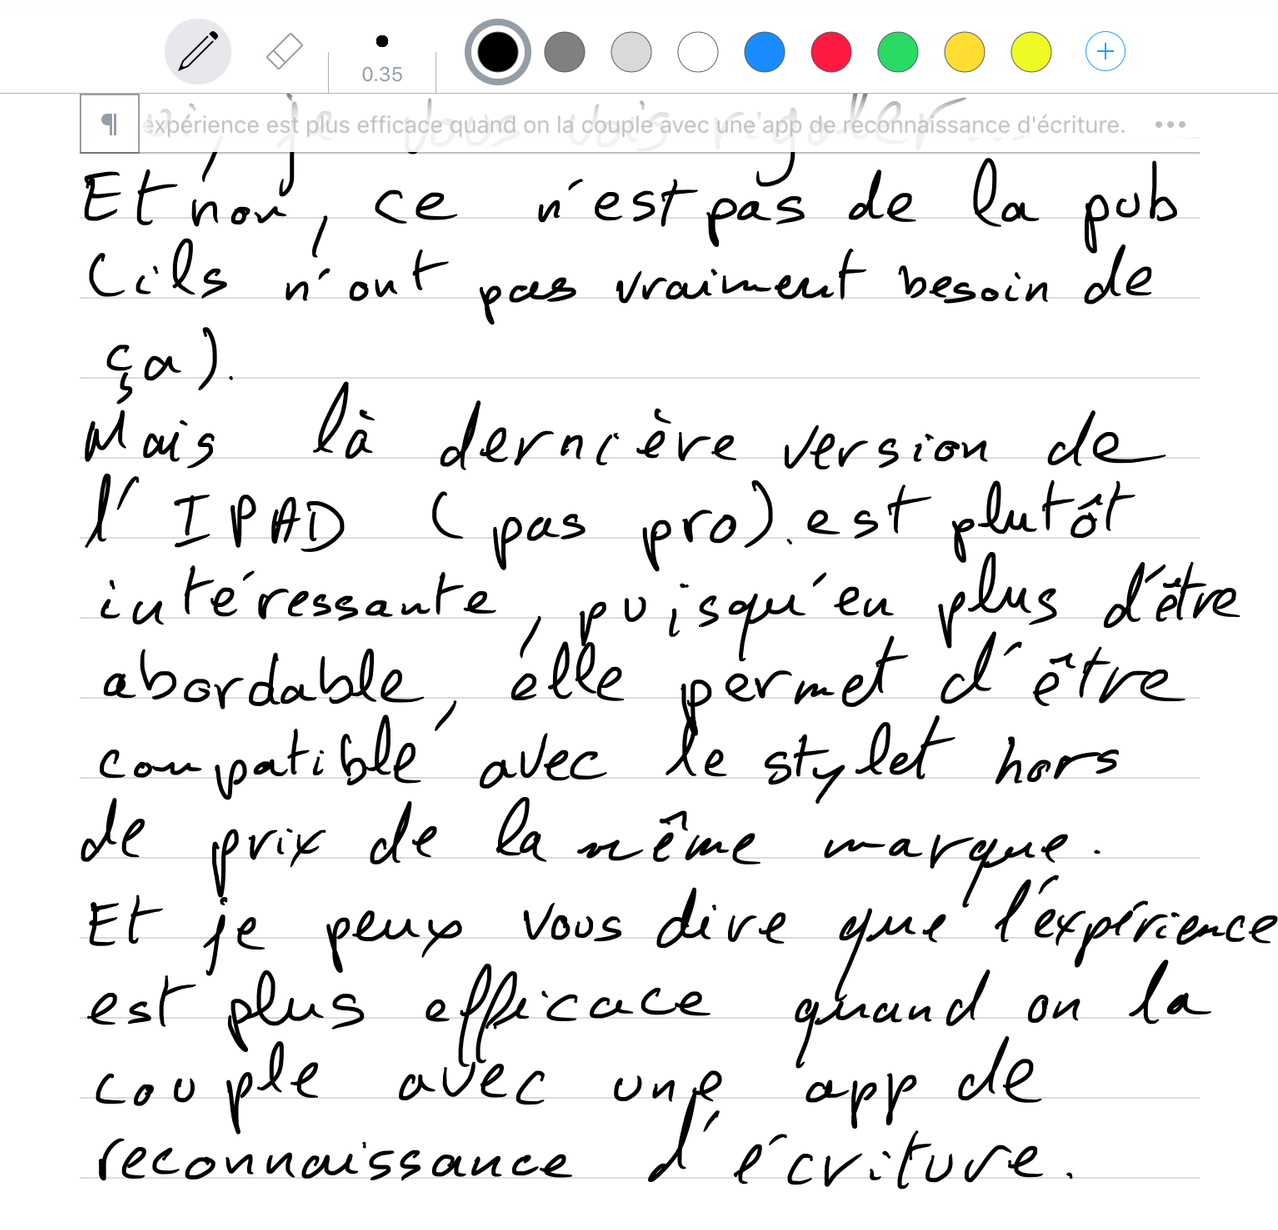 0.35
expérience est plus efficace quand on la couple avec une app de reconnaissance d'écriture.
je vous vois rigoler...
Et non, ce n'est pas de la pub
(ils n'ont pas vraiment besoin de
ça).
Mais là dernière version de
l'IPAD (pas pro).est plutôt
intéressante, puisqu'en plus d'être
abordable, elle permet d'être
compatible avec le stylet hors
de prix de la même marque.
Et je peux vous dire que l'expérience
est plus efficace quand on la
couple avec une app de
reconnaissance d'écriture.